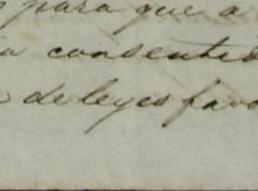 para que a
consentid
de leyes favo